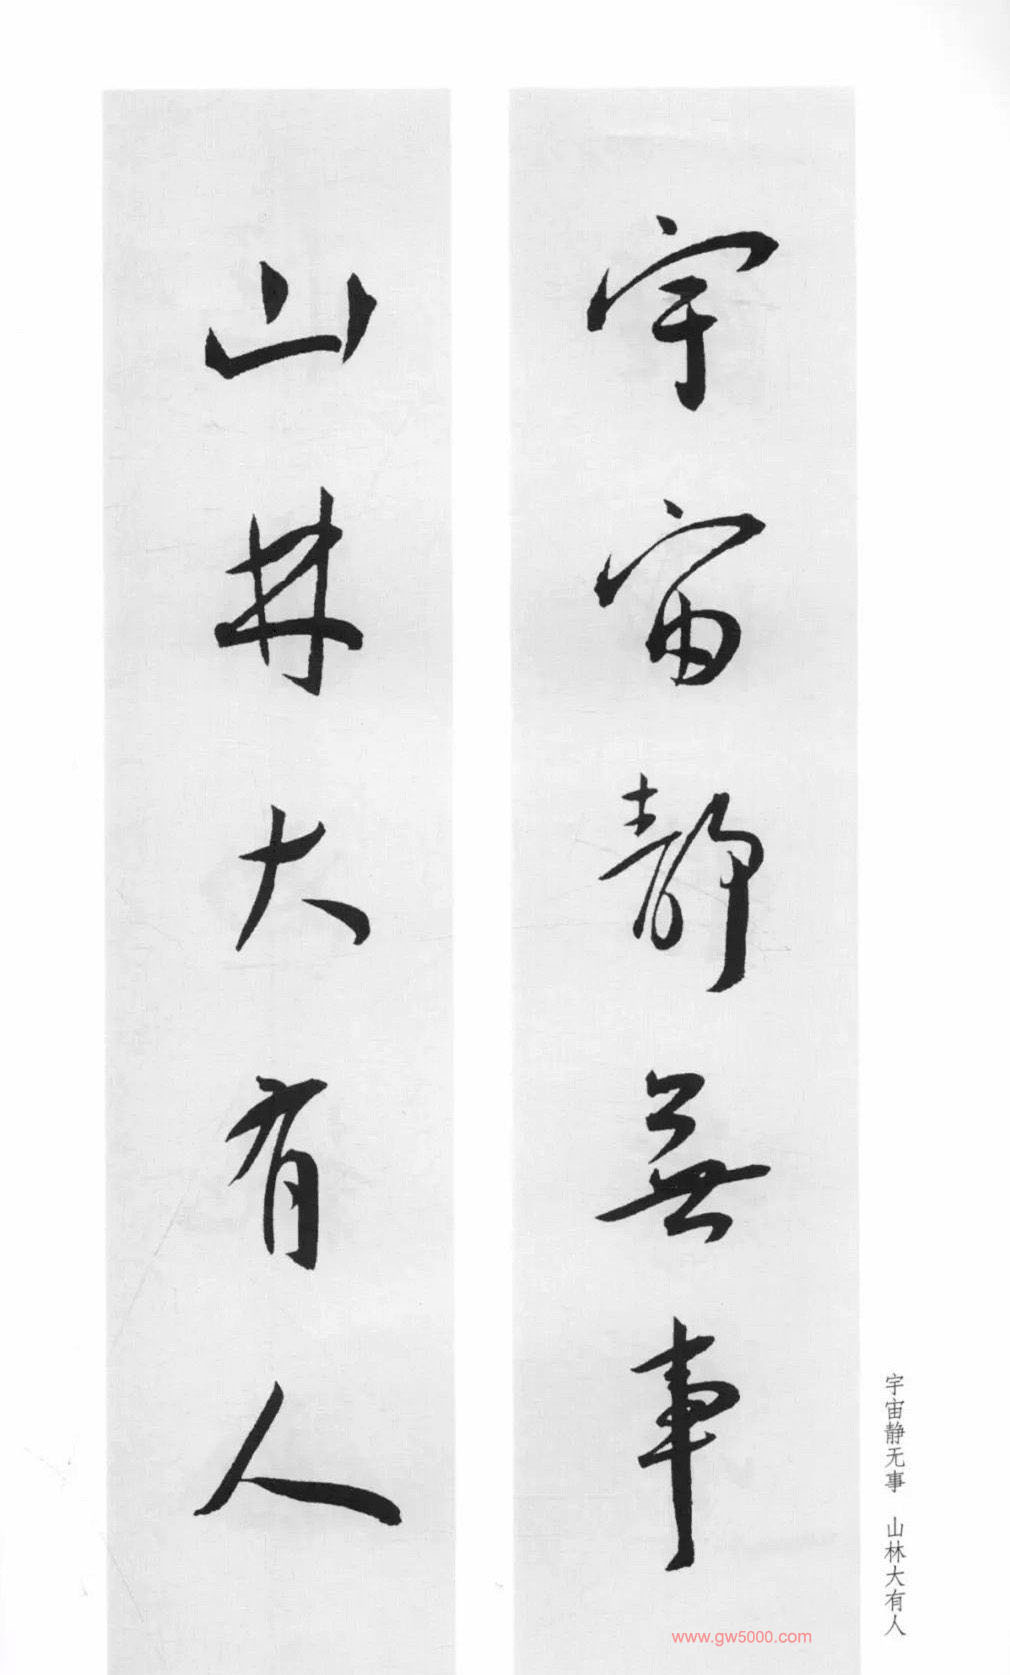 宇宙静無事
山林大有人
宇宙静无事 山林大有人
www.gw5000.com